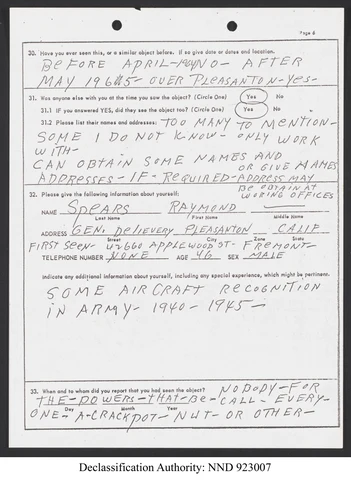 Page 6
30. Have you ever seen this, or a similar object before. If so give date or dates and location.
BEFORE APRIL-MAYNO- AFTER
MAY 1965- OVER PLEASANTON-YES-
31. Was anyone else with you at the time you saw the object? (Circle One) Yes No
31.1 IF you answered YES, did they see the object too? (Circle One) Yes No
31.2 Please list their names and addresses: TOO MANY TO MENTION-
SOME I DO NOT KNOW- ONLY WORK
WITH-
CAN OBTAIN SOME NAMES AND
OR GIVE NAMES
ADDRESSES-IF-REQUIRED-ADDRESS MAY
BE OBTAIN AT
WORING OFFICES
32. Please give the following information about yourself:
NAME SPEARS RAYMOND
Last Name First Name Middle Name
ADDRESS GEN. DELIEVERY PLEASANTON CALIF
Street City Zone State
FIRST SEEN- 42660 APPLEWOOD ST- FREMONT-
TELEPHONE NUMBER NONE AGE 46 SEX MALE
Indicate any additional information about yourself, including any special experience, which might be pertinent.
SOME AIRCRAFT RECOGNITION
IN ARMY- 1940-1945-
33. When and to whom did you report that you had seen the object? NOBODY-FOR
THE-POWERS-THAT-BE-CALL-EVERY-
Day Month Year
ONE-A-CRACKPOT-NUT-OR OTHER-
Declassification Authority: NND 923007